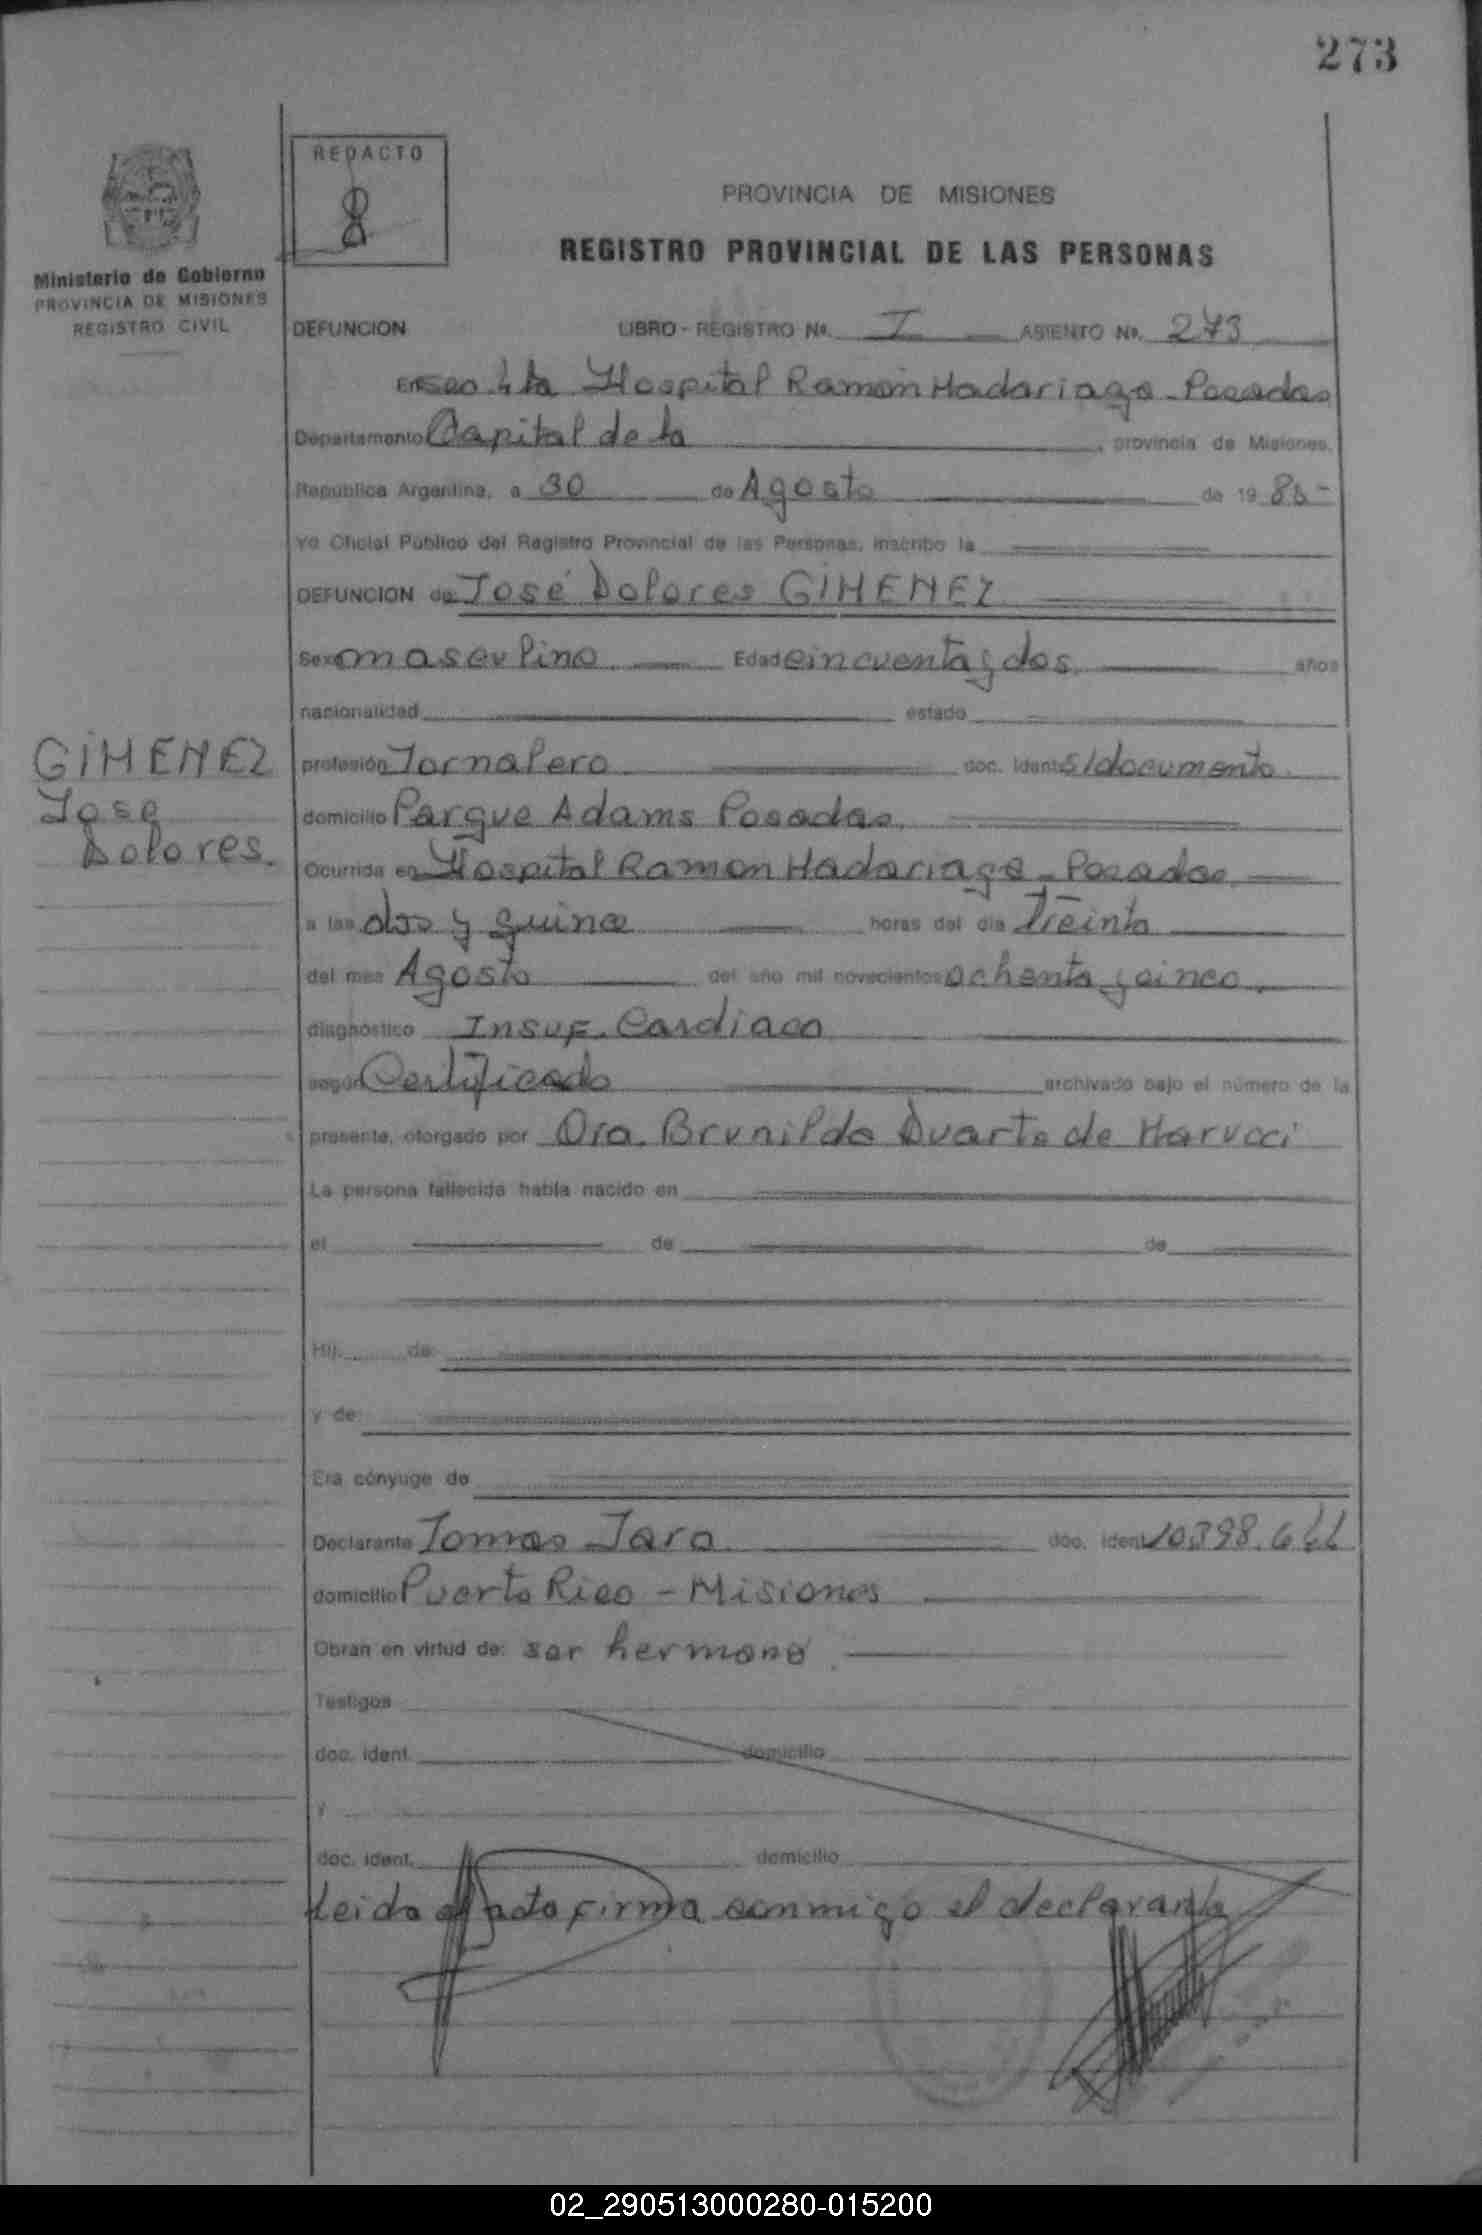 273
REDACTO
Ministerio de Gobierno
PROVINCIA DE MISIONES
REGISTRO CIVIL
PROVINCIA DE MISIONES
REGISTRO PROVINCIAL DE LAS PERSONAS
DEFUNCION LIBRO - REGISTRO No. I ASIENTO No. 273
En Secc. 4ta Hospital Ramon Madariaga - Posadas
Departamento Capital de la , provincia de Misiones.
República Argentina, a 30 de Agosto de 19 85 -
Yo Oficial Público del Registro Provincial de las Personas, inscribo la
DEFUNCION de José Dolores GIMENEZ
Sexo masculino Edad cincuenta y dos años
nacionalidad estado
GIMENEZ
José
Dolores.
profesión Jornalero doc. ident. s/documento
domicilio Parque Adams Posadas
Ocurrida en Hospital Ramon Madariaga - Posadas
a las dos y quince horas del día Treinta
del mes Agosto del año mil novecientos ochenta y cinco
diagnóstico Insuf. Cardiaca
según Certificado archivado bajo el número de la
presente, otorgado por Dra. Brunilda Duarte de Marucci
La persona fallecida había nacido en
el de de
Hij de:
y de:
Era cónyuge de
Declarante Tomas Jara doc. ident. 10.398.644
domicilio Puerto Rico - Misiones
Obran en virtud de: ser hermano
Testigos
doc. ident. domicilio
y
doc. ident. domicilio
Leida el acta firma conmigo el declarante
02_290513000280-015200